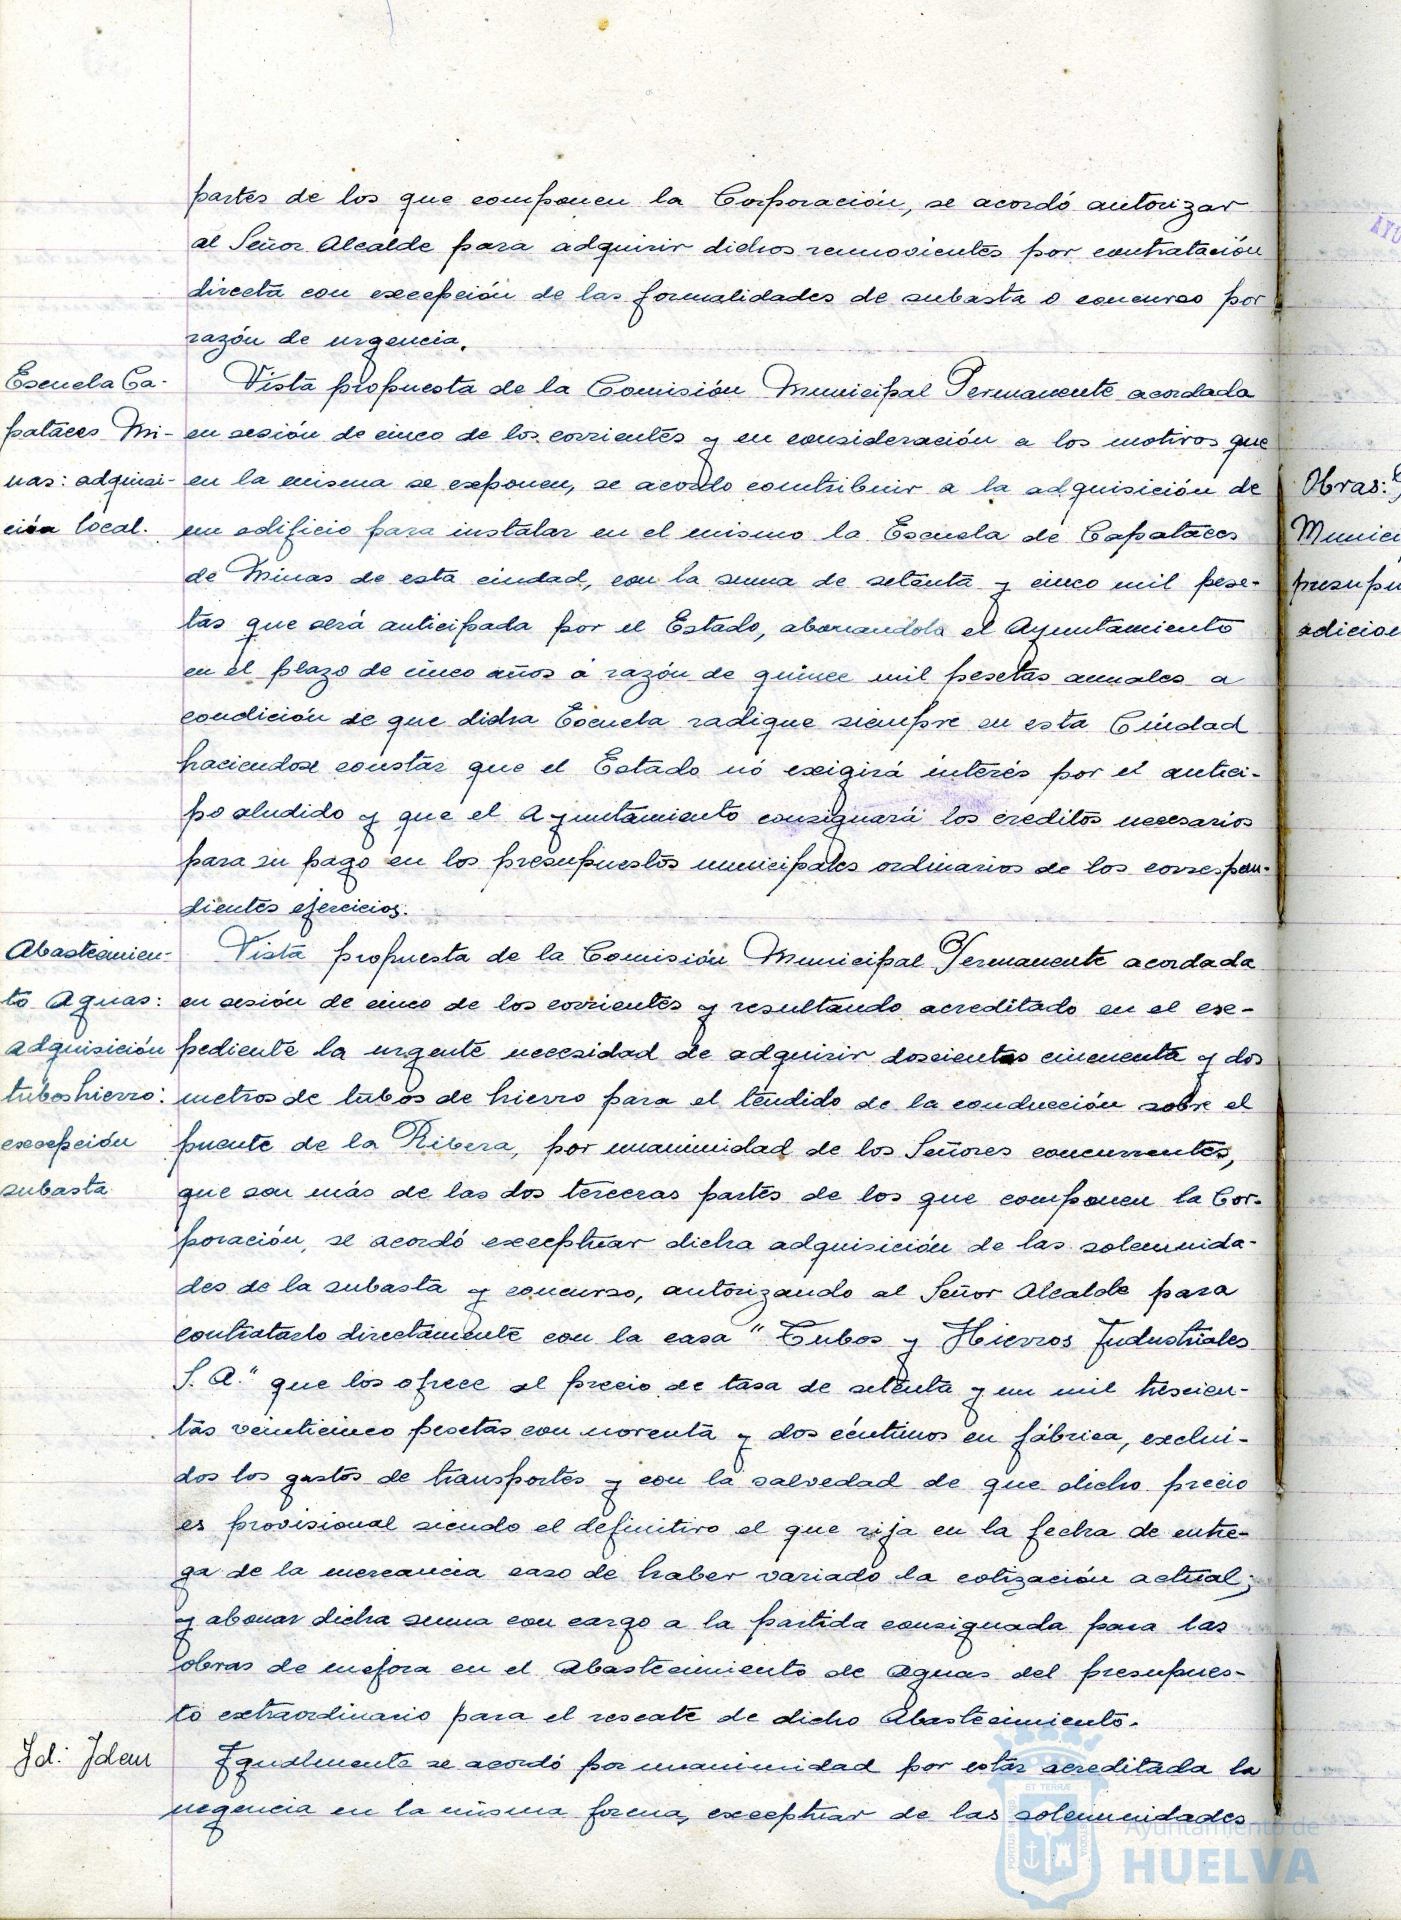 partes de los que componen la Corporación, se acordó autorizar
al Señor Alcalde para adquirir dichos semovientes por contratación
directa con excepción de las formalidades de subasta o concurso por
razón de urgencia.
Escuela Ca-
pataces Mi-
nas: adquisi-
ción local.
Vista propuesta de la Comisión Municipal Permanente acordada
en sesión de cinco de los corrientes y en consideración a los motivos que
en la misma se exponen, se acordo contribuir a la adquisición de
un edificio para instalar en el mismo la Escuela de Capataces
de Minas de esta ciudad, con la suma de setenta y cinco mil pese-
tas que será anticipada por el Estado, abonandola el Ayuntamiento
en el plazo de cinco años á razón de quince mil pesetas anuales a
condición de que dicha Escuela radique siempre en esta Ciudad
haciendose constar que el Estado nó exigirá interés por el antici-
po aludido y que el Ayuntamiento consignará los creditos necesarios
para su pago en los presupuestos municipales ordinarios de los correspon-
dientes ejercicios.
Abastecimien-
to Aguas:
adquisición
tubos hierro:
excepción
subasta
Vista propuesta de la Comisión Municipal Permanente acordada
en sesión de cinco de los corrientes y resultando acreditado en el exe-
pediente la urgente necesidad de adquirir doscientos cincuenta y dos
metros de tubos de hierro para el tendido de la conducción sobre el
puente de la Ribera, por unanimidad de los Señores concurrentes,
que son más de las dos terceras partes de los que componen la Cor-
poración, se acordó exceptuar dicha adquisición de las solemnida-
des de la subasta y concurso, autorizando al Señor Alcalde para
contratarlo directamente con la casa "Tubos y Hierros Industriales
S.A." que los ofrece al precio de tasa de setenta y un mil trescien-
tas veinticinco pesetas con noventa y dos céntimos en fábrica, exclui-
dos los gastos de transportes y con la salvedad de que dicho precio
es provisional siendo el definitivo el que rija en la fecha de entre-
ga de la mercancia caso de haber variado la cotización actual;
y abonar dicha suma con cargo a la partida consignada para las
obras de mejora en el Abastecimiento de Aguas del presupues-
to extraordinario para el rescate de dicho Abastecimiento.
Id: Idem
Igualmente se acordó por unanimidad por estar acreditada la
urgencia en la misma forma, exceptuar de las solemnidades
Obras:
Munici
presupu
adicion
AYU
ET TERRÆ
PORTUS
CUSTODIA
Ayuntamiento de
HUELVA